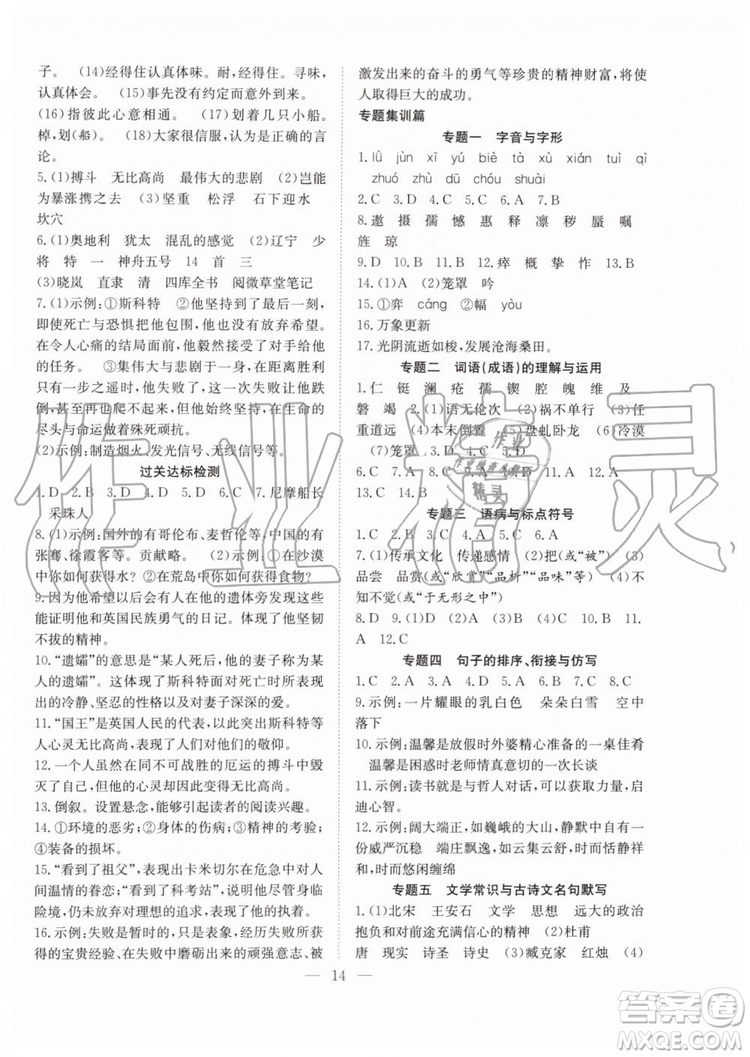 子。 (14)经得住认真体味。耐,经得住。寻味,
认真体会。 (15)事先没有约定而一致行动。
(16)指彼此心意相通。 (17)划几只小船。
棹,划(船)。 (18)大家很信服,认为是正确的言
论。
5.(1)搏斗 无比高尚 最伟大的悲剧 (2)岂能
为暴涨携之去 (3)坚重 松浮 石下迎水
坎穴
6.(1)奥地利 犹太 混乱的感觉 (2)辽宁 少
将 特 一 神舟五号 14 首 三
(3)晓岚 直隶 清 四库全书 阅微草堂笔记
7.(1)示例:①斯科特 ②他坚持到了最后一刻,
即使死亡与恐惧把他包围,他也没有放弃希望。
在令人心痛的结局面前,他毅然选择了给予他
的任务。 ③集伟大与悲剧于一身。在距离胜利
只有一步之遥时,他失败了,他的失败让他跌
倒,但他再也爬不起来。但他始终坚持,在寒冷的
尽头与命运做着殊死顽抗。
(2)示例:制造烟火、发光信号、无线信号等。
过关达标检测
1.D 2.C 3.D 4.A 5.D 6.A 7.尼摩船长
采珠人
8.(1)示例:国外的有哥伦布、麦哲伦等,中国的有
张骞、徐霞客等。贡献略。 (2)示例:①在沙漠
中你如何获得水? ②在荒岛中你如何获得食物?
9.因为他希望以后他的遗体旁会发现那些能
证明他和英国民族勇气的日记。体现了他坚韧
不拔的精神。
10.“遗孀”的意思是“某人死后,他的妻子称为某
人的遗孀”。体现了斯科特在面对死亡到来时
的冷静、坚强的性格以及对妻子深深的爱。
11.“国王”是英国人民的代表,以此突出斯科特等
人的行为,表现了英国人民对他们的敬仰。
12.一个人虽然在同不可战胜的厄运的搏斗中毁
灭了自己,但他的心灵却因此变得无比高尚。
13.倒叙。设置悬念,能引起读者的阅读兴趣。
14.①环境的恶劣;②身体的伤病;③精神的考验;
④装备的损坏。
15.“看到了祖父”,表现出卡米切尔在危急中对人
间温情的眷恋;“看到了科考站”,说明他虽身临
险境,仍不放弃对理想的追求,令人赞叹。
16.示例:失败并不可怕。在经历失败后总结获得
的宝贵经验,在失败中磨砺出来的顽强意志、被
激发出来的奋斗的勇气等珍贵的精神财富,将使
人取得巨大的成功。
专题集训篇
专题一 字音与字形
1.lǜ jùn xī yú biè tà xù xián tuǐ qì
zhuó zhù dū chóu shuài
2.C 3.D 4.D 5.A 6.C 7.B
8.遨 摄 孺 憾 惠 霹 凛 秽 蜃 嘱
旌 琼
9.D 10.D 11.B 12.瘁 概 挚 吟 13.B
14.(1)A (2)笼罩 (3)A
15.①弈 cáng ②幅 yòu
16.万象更新
17.光阴流逝如梭,发展沧海桑田。
专题二 词语(成语)的理解与运用
1.仁 铤 澜 疮 孺 锲 魄 雄 维 及
磐 竭 2.(1)语无伦次 (2)祸不单行 (3)任
重道远 (4)本末倒置 (5)盘虬卧龙 (6)冷漠
(7)笼罩 3.B 4.C 5.B
6.C 7.A 8.D 9.B 10.B 11.A 12.C
专题三 语病与标点符号
1.C 2.C 3.A 4.B 5.C 6.A
7.(1)传承文化 传递情感 (2)把“被”去掉 (3)
品尝 尝试(或“欣赏”“品析”“品味”等) (4)
不知不觉(或“于无形之中”)
8.(1)D (2)D (3)C 9.A 10.B 11.A
12.C
专题四 句子的排序、衔接与仿写
1.C 2.D 3.A 4.B 5.C 6.A 7.B 8.C
9.示例:一片耀眼的乳白色 朵朵白雪 空中
落下
10.示例:温馨是放假时外婆精心准备的一桌佳肴
温馨是困惑时老师情真意切的一次长谈
11.示例:读书就是与哲人对话,可以获取力量,启
迪心智。
12.示例:阔大端正,如巍峨的大山,静默中自有一
份威严沉稳 端庄飘逸,如云卷云舒,潇洒飘飞
时尚能悠闲缠绵
专题五 文学常识与古诗文名句默写
1.(1)北宋 王安石 文学 思想 远大的政治
抱负和对前途充满信心 (2)杜甫
唐 现实 诗圣 诗史 (3)臧克家 红烛 (4)
14
作业精灵
答案圈
MXQE.COM